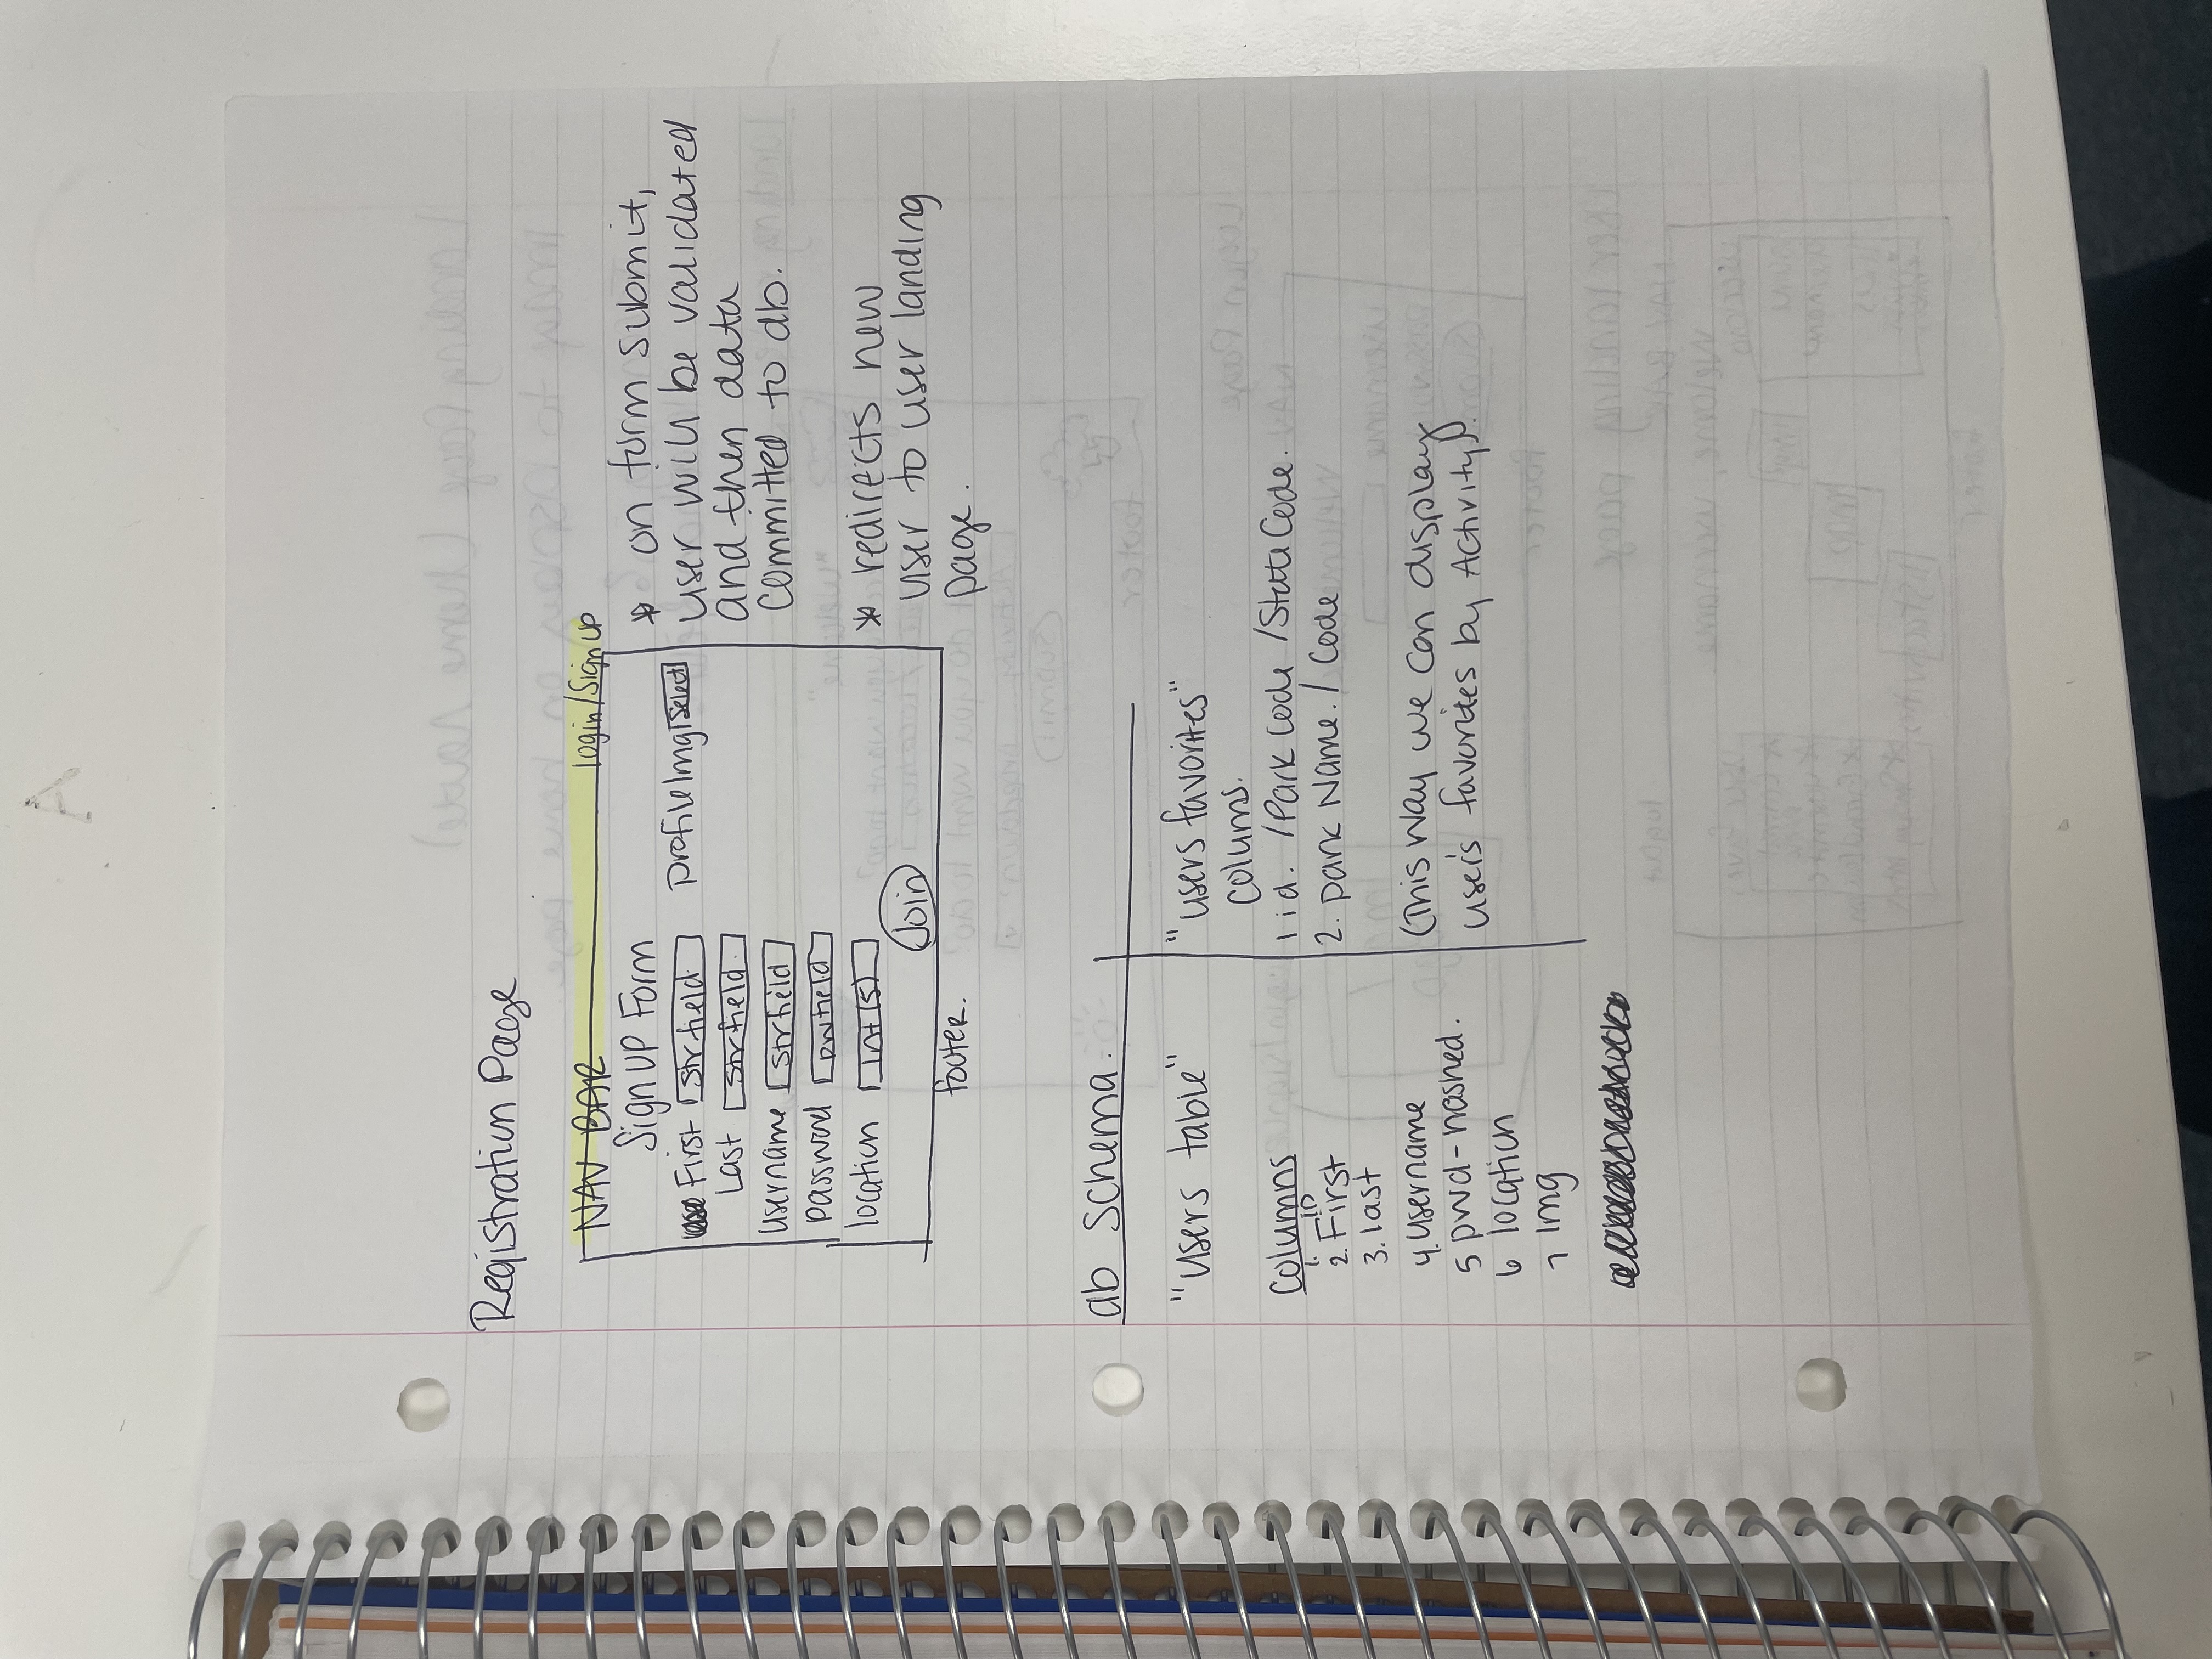 A
Registration Page
NAV BAR login/Sign up
Sign up Form
First Str field Profile Img Select
Last Str field
username Str field
Password pw field
location Int(5)
Join
footer.
* on form submit,
user will be validated
and then data
committed to db.
* redirects new
user to user landing
page.
db schema.
"users table"
Columns
1. ID
2. First
3. last
4. username
5 pwd-hashed.
6 location
7 Img
"users favorites"
Colums.
1 id. /Park Code /State Code.
2. park Name. / Code
(This way we can display
user's favorites by Activity).
Landing Page (home route)
Login Page
footer
User landing page
NAV BAR logout
Welcome, username
map